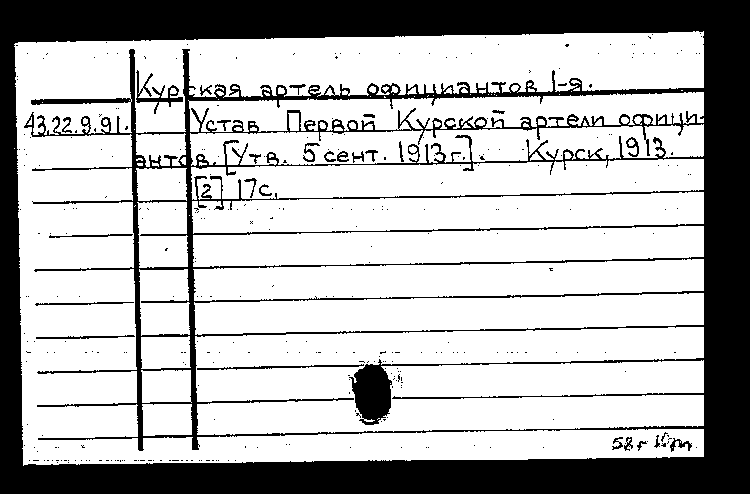 Курская артель официантов, 1-я.
43.22.9.91. Устав Первой Курской артели офици-
антов. [Утв. 5 сент. 1913 г.]. Курск, 1913.
[2], 17 с.
58 г